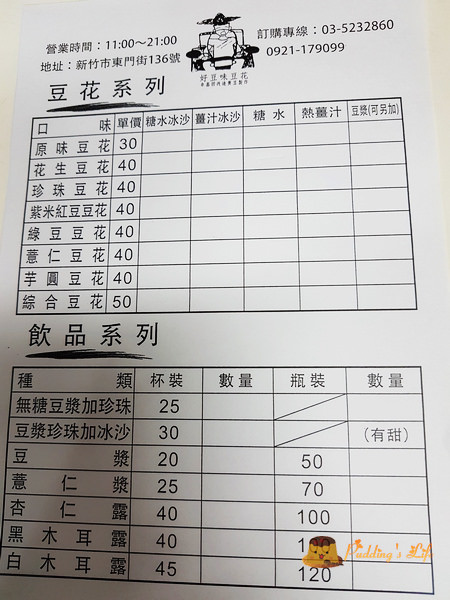 營業時間：11:00～21:00
地址：新竹市東門街136號
好豆味豆花
訂購專線：03-5232860
0921-179099
豆花系列
口味 單價 糖水冰沙 薑汁冰沙 糖水 熱薑汁 豆漿(可另加)
原味豆花 30
花生豆花 40
珍珠豆花 40
紫米紅豆豆花 40
綠豆豆花 40
薏仁豆花 40
芋圓豆花 40
綜合豆花 50
飲品系列
種類 杯裝 數量 瓶裝 數量
無糖豆漿加珍珠 25
豆漿珍珠加冰沙 30 (有甜)
豆漿 20 50
薏仁漿 25 70
杏仁露 40 100
黑木耳露 40
白木耳露 45 120
Pudding's Life